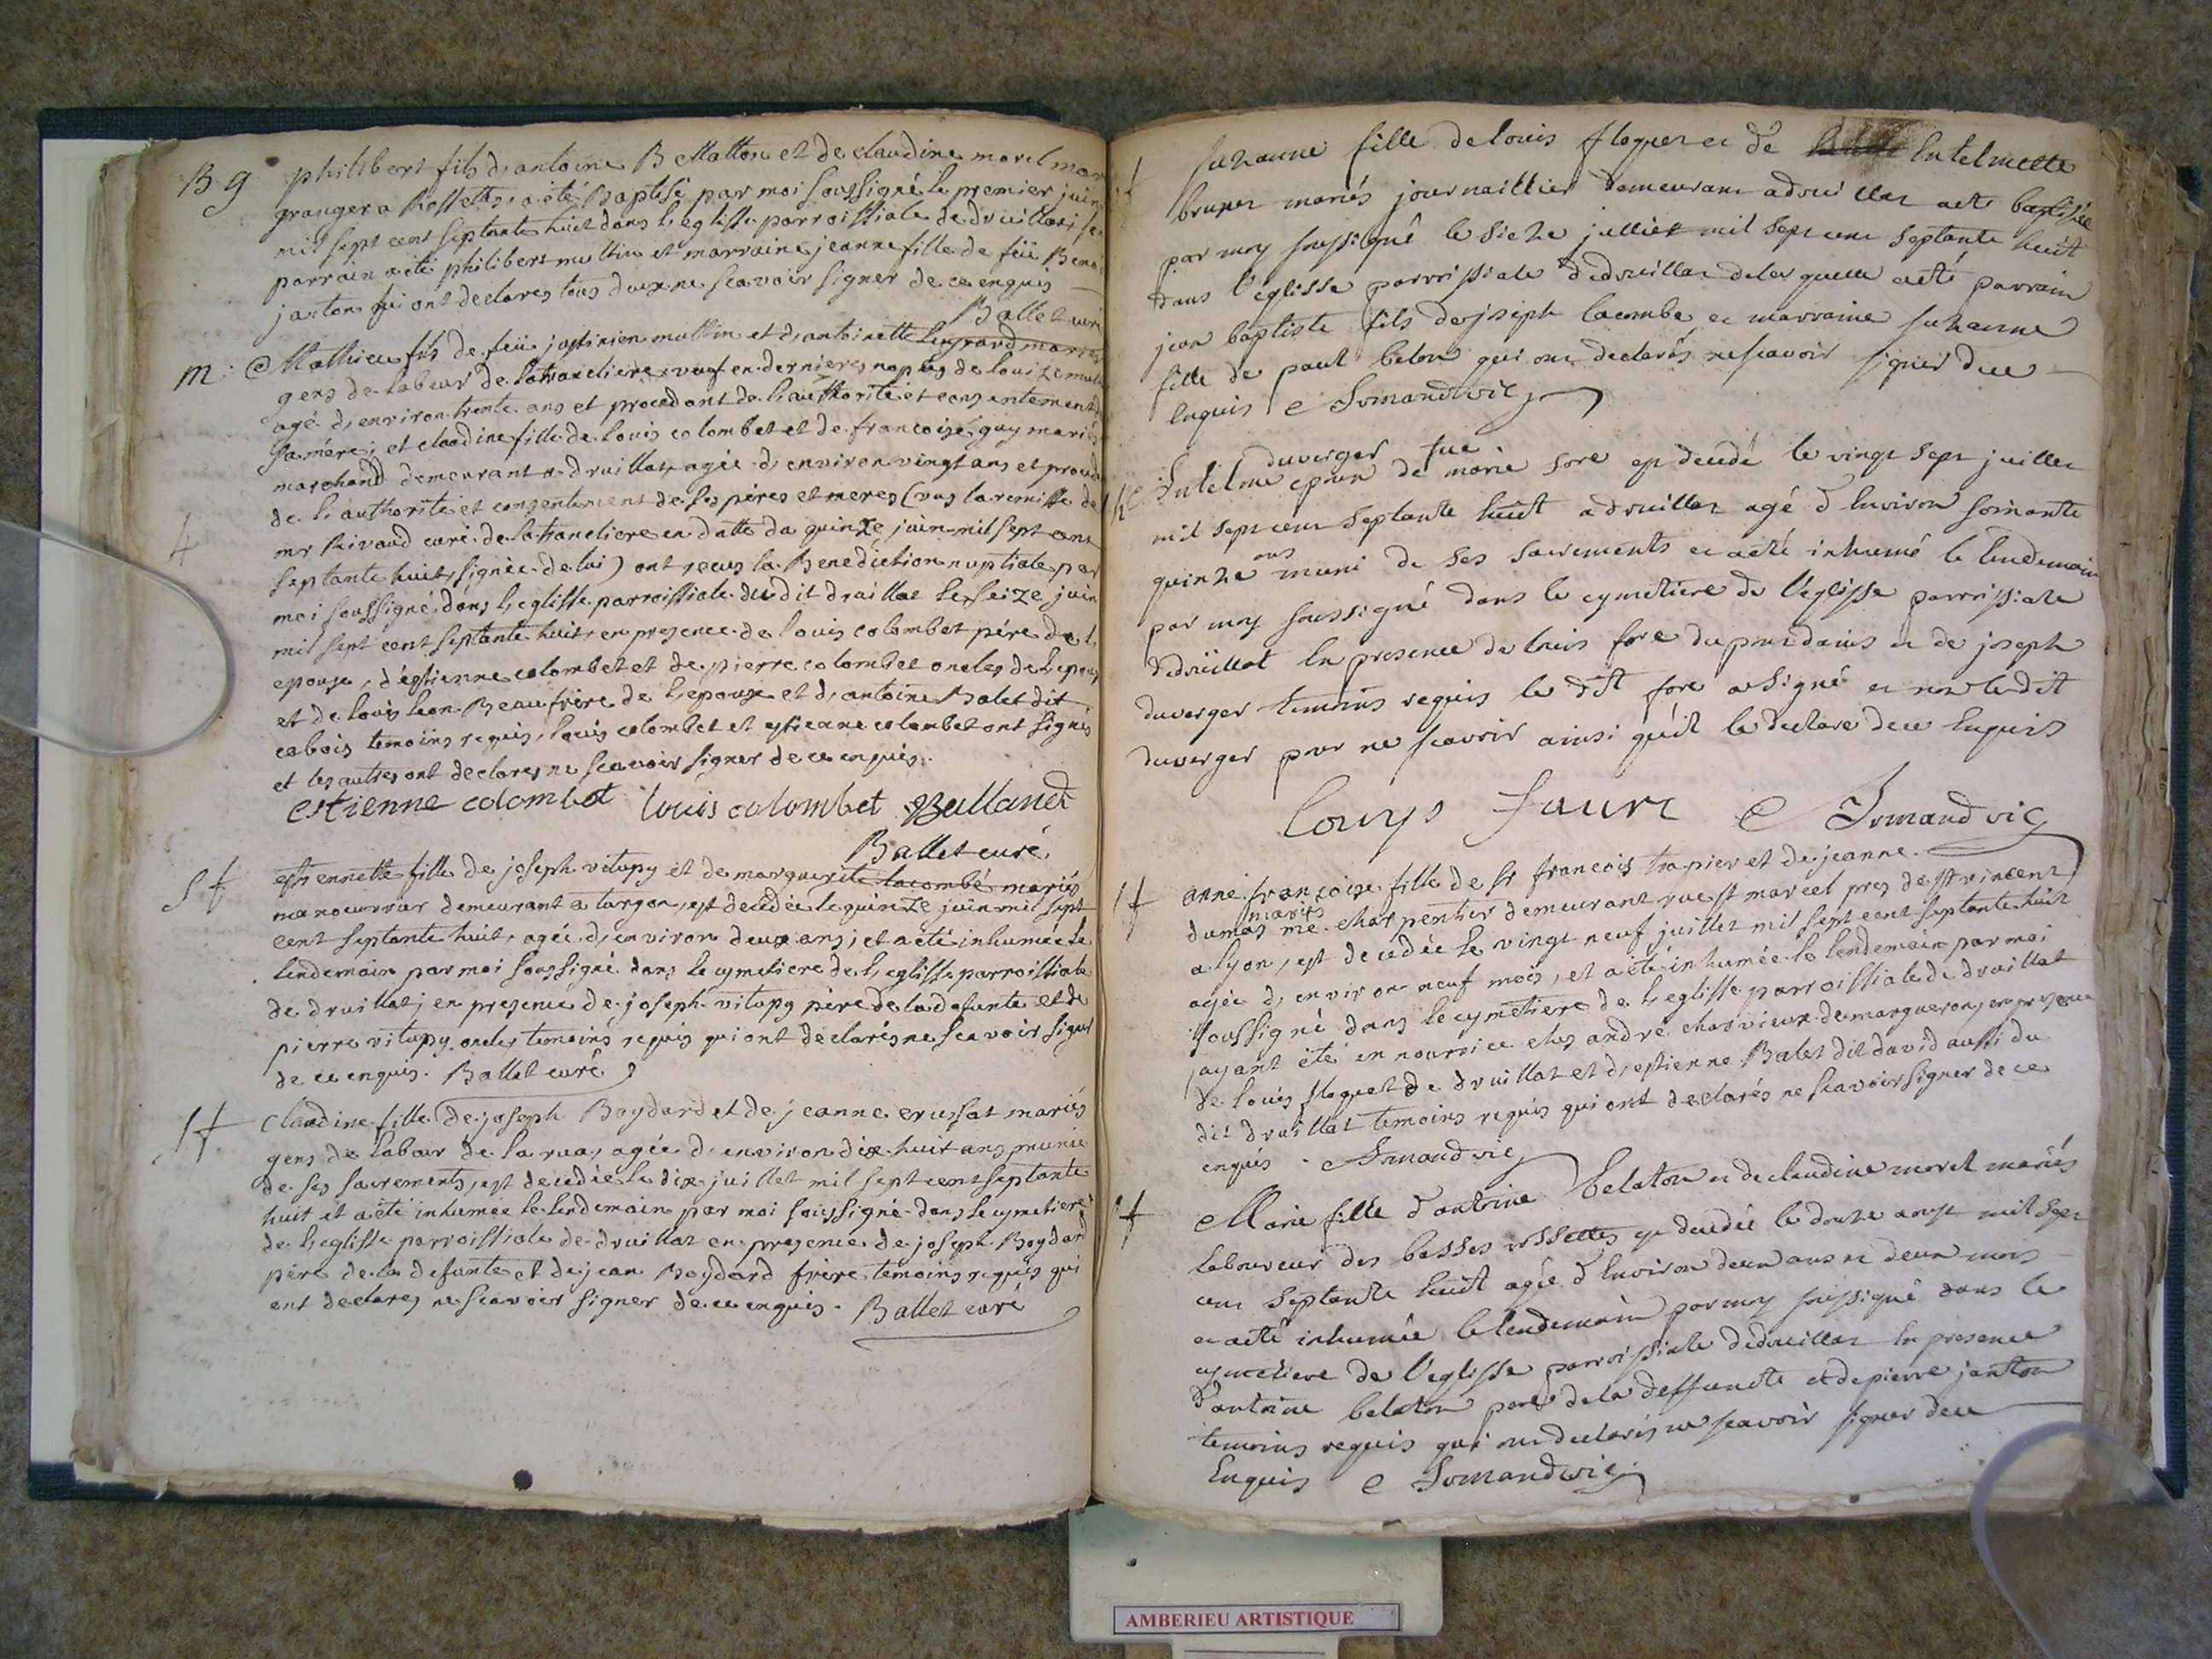 B g philibert fils d'antoine Bellatton et de claudine morel mar
granger a Rossettes, a été Baptisé par moi soussigné le premier juin
mil sept cent septante huit dans l'eglisse parroissiale de druillat; son
parrain a été philibert mullin et marraine jeanne fille de feü Beno
janton qui ont declarés tous deux ne scavoir signer de ce enquis
Ballet curé
m: Mathieu fils de feü justinien mullin et d'antoinette legrand mariés
gens de labeur de latranclieres veuf en dernieres nopces de louize mul
agé d'environ trente ans et procedant de l'authorité et consentement de
sa mére; et claudine fille de louis colombet et de francoise guy mariés
marchand demeurant a druillat, agée d'environ vingt ans et procedant
de l'authorité et consentement de ses péres et meres (vus la remisse de
mr Rivaud curé de latrancliere en datte du quinze juin mil sept cent
4
septante huit, signée de lui) ont recus la Benediction nuptiale par
moi soussigné, dans l'eglisse parroissiale dudit druillat le seize juin
mil sept cent septante huit, en presence de louis colombet pére de l'
epouse, d'estienne colombet et de pierre colombet oncles de l'epouse
et de louis leon Beaufrére de l'epouse et d'antoine Balet dit
cabois temoins requis, louis colombet et estienne colombet ont signés
et les autres ont declares ne scavoir signer de ce enquis.
estienne colombet louis colombet Bulland
Ballet curé
S t estiennette fille de joseph vitupy et de marguerite lacombe mariés
manoeuvrar demeurant a turgon, est decedée le quinze juin mil sept
cent septante huit, agée d'environ deux ans; et a été inhumée le
lendemain par moi soussigné dans le cymetiere de l'eglisse parroissiale
de druillat; en presence de joseph vitupy pére de la defunte et de
pierre vitupy oncle, temoins requis qui ont declarés ne scavoir signer
de ce enquis. Ballet curé
S t Claudine fille de joseph Boydard et de jeanne crussat mariés
gens de labeur de la rua, agée d'environ dix huit ans munie
de ses sacrements, est decedée le dix juillet mil sept cent septante
huit et a été inhumée le lendemain par moi soussigné dans le cymetiere
de l'eglisse parroissiale de druillat en presence de joseph Boydard
pére de la defunte et de jean Boydard frére temoins requis qui
ont declares ne scavoir signer de ce enquis. Ballet curé
suzanne fille de louis floquet et de Entelmette
brunet mariés journaillier demeurant adruillat aeté baptisée
par moy soussigné le sieze juillet mil sept cent septante huit
dans l'eglisse parroissiale dedruillat delaquelle aeté parrain
jean baptiste fils dejoseph lacombe et marraine suzanne
fille de paul belon qui ont declarés nescavoir signer dece
Enquis Jomandvic
duverger feue
Entelme epoux de marie fore est decedé le vingt sept juillet
mil sept cent septante huit adruillat agé d'Environ soixante
ans
quinze muni de ses sacrements et aeté inhumé le lendemain
par moy soussigné dans le cymetiere de l'eglisse parroissiale
dedruillat En presence de louis fore du et de joseph
duverger temoins requis le dit fore a signé et non ledit
duverger pour ne scavoir ainsi qu'il le declare dece Enquis
Louys faure Jomandvic
S t anne francoise fille de sr francois trapier et de jeanne
mariés
dumas me. charpentier demeurant rue st marcel pres de st vincent
a lyon, est decedée le vingt neuf juillet mil sept cent septante huit
agée d'environ neuf mois, et a été inhumée le lendemain par moi
soussigné dans le cymetiere de l'eglisse parroissiale de druillat
ayant été en nourrice ches andré charvieux de margueron, en presence
de louis floquet de druillat et d'estienne Balet dit david aussi du
dit druillat temoins requis qui ont declarés ne scavoir signer de ce
enquis. Jomandvic
S t Marie fille d'antoine belaton et de claudine morel mariés
laboureur des basses rossettes est decedée le douze aoust mil sept
cent septante huit agée d'Environ deux ans et deux mois
et aeté inhumée le lendemain par moy soussigné dans le
cymetiere de l'eglisse parroissiale dedruillat En presence
d'antoine belaton pere dela deffuncte et depierre janton
temoins requis qui ont declarés ne scavoir signer dece
Enquis Jomandvic
AMBERIEU ARTISTIQUE